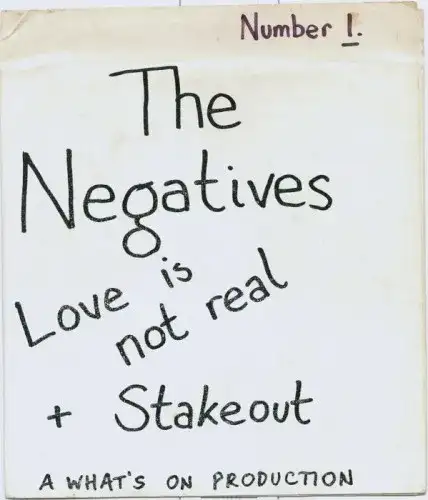 Number 1.
The
Negatives
Love is
not real
+ Stakeout
A WHAT'S ON PRODUCTION